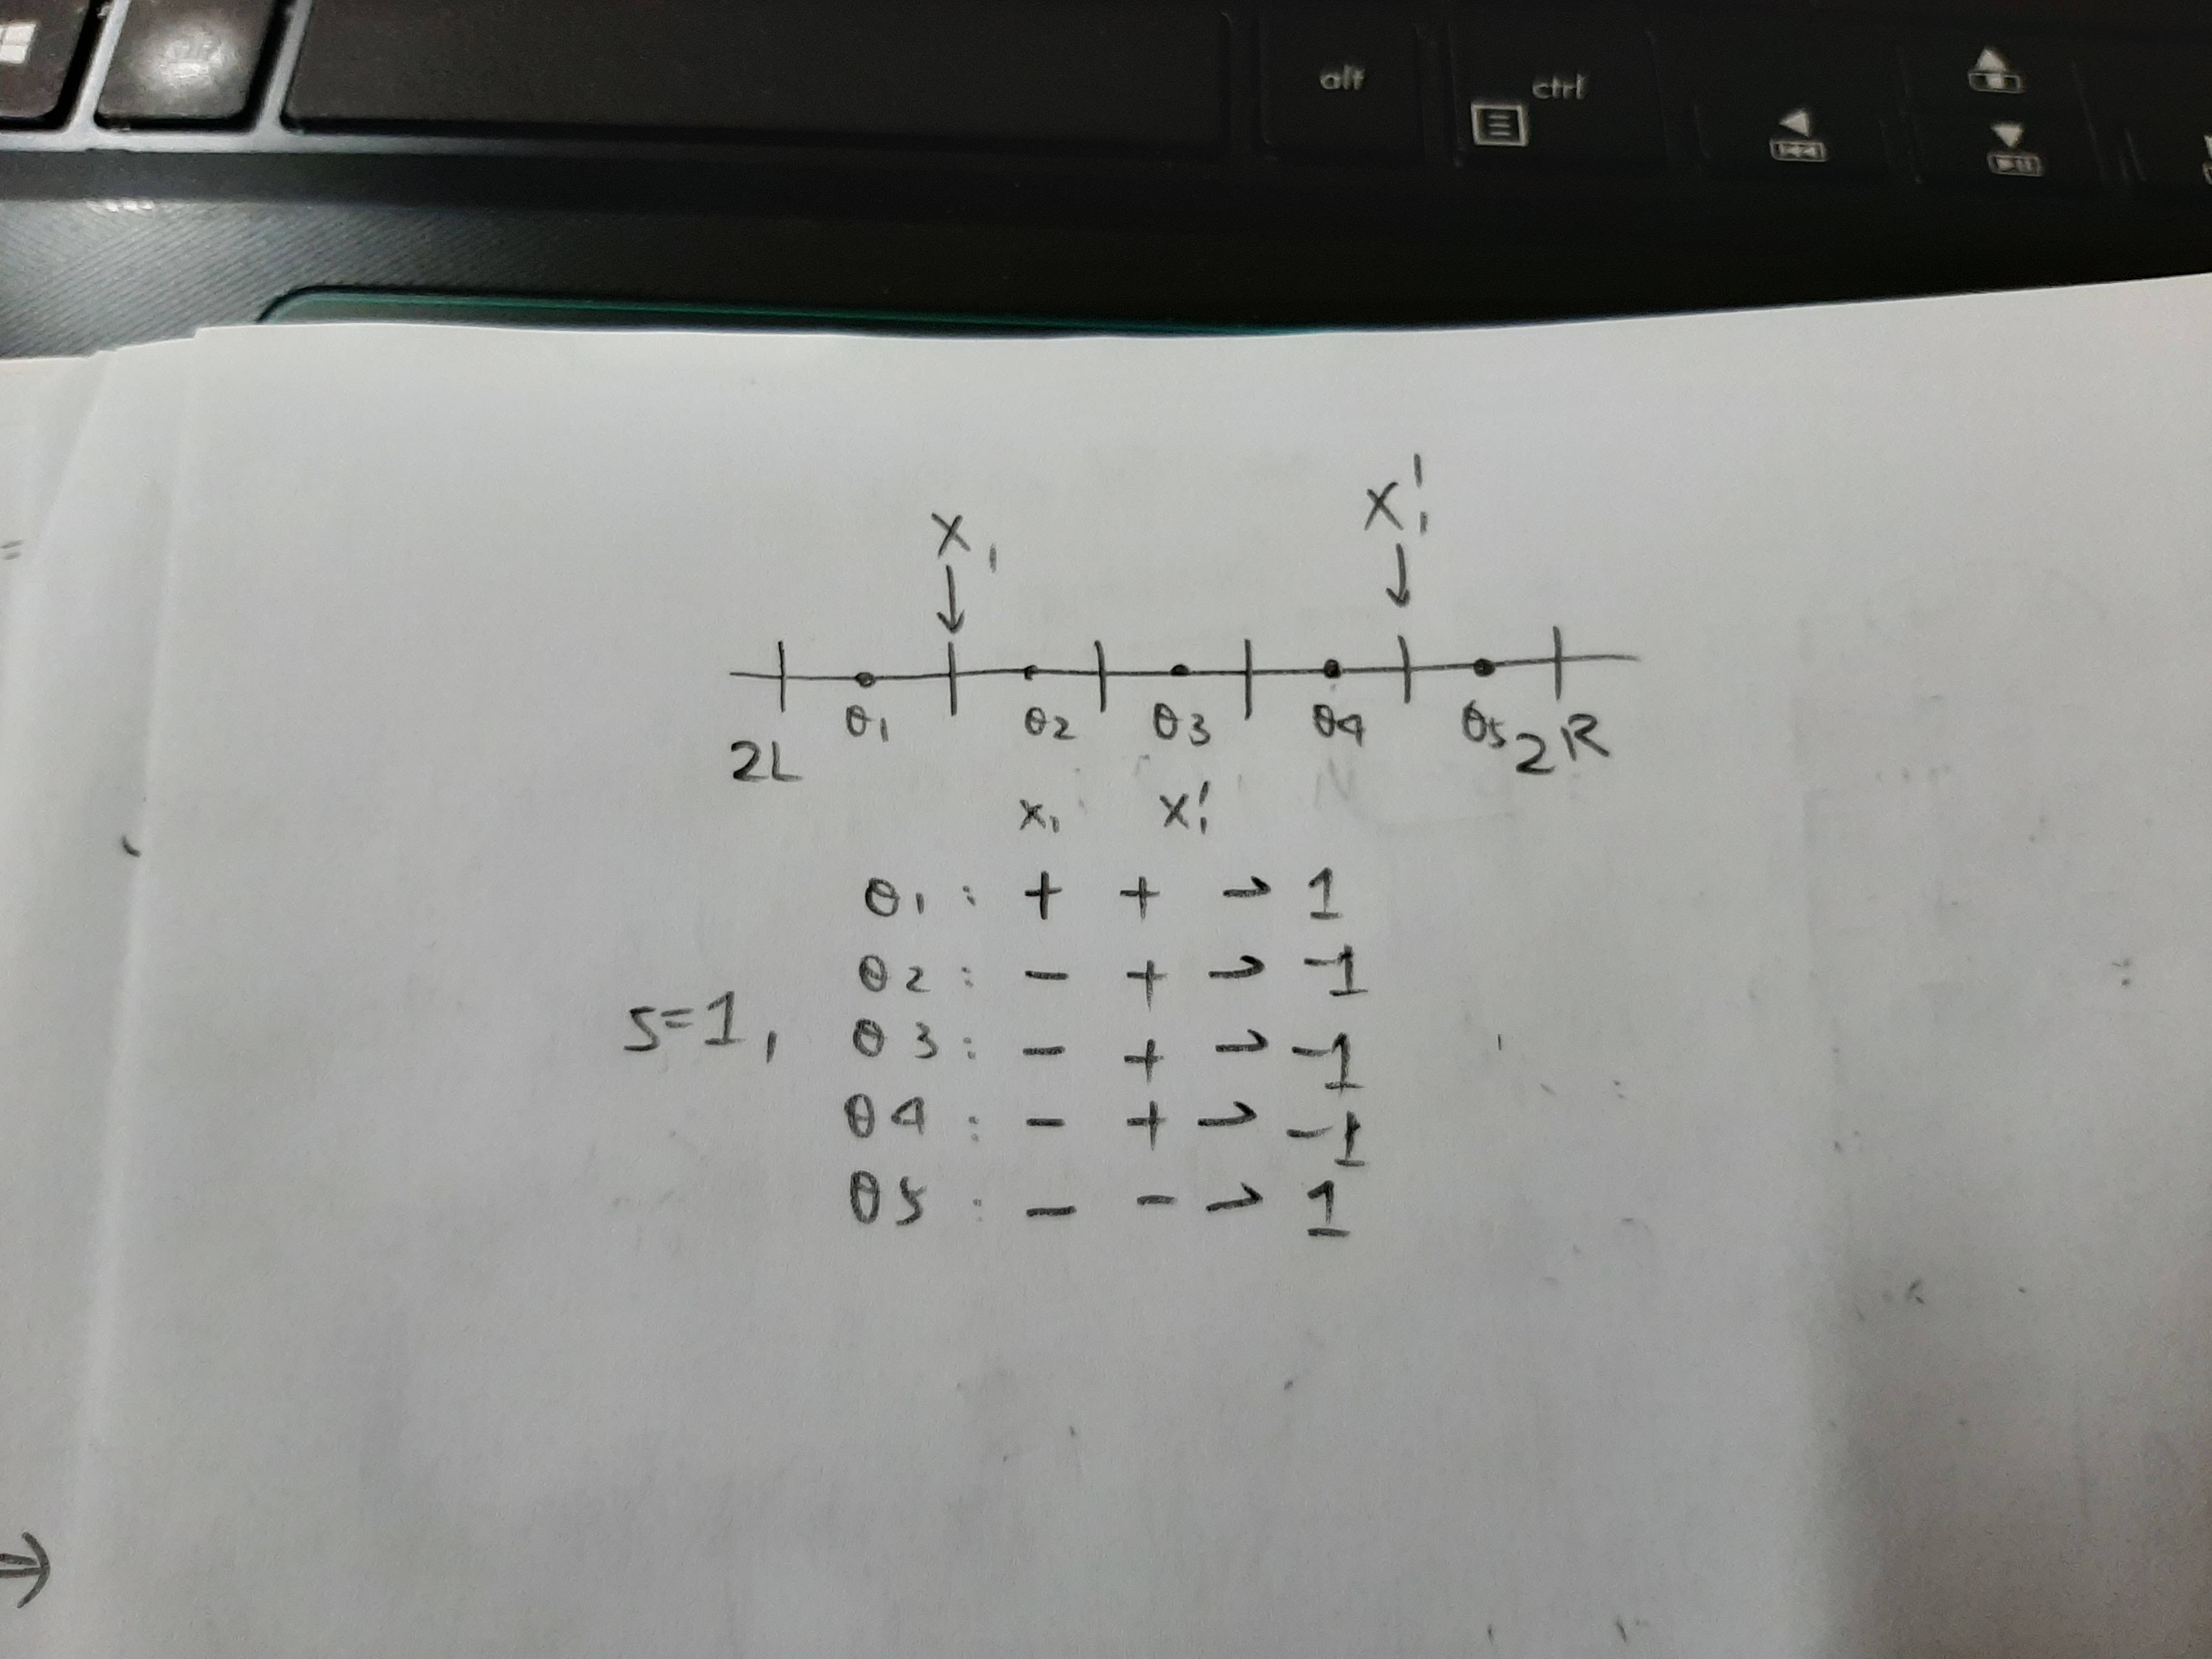 alt
ctrl
=
X₁ X₁'
θ₁ θ₂ θ3 θ4 θ5
2L 2R
x₁ x₁'
θ₁ : + + → 1
θ₂ : − + → −1
S=1, θ3 : − + → −1
θ4 : − + → −1
θ5 : − − → 1
→